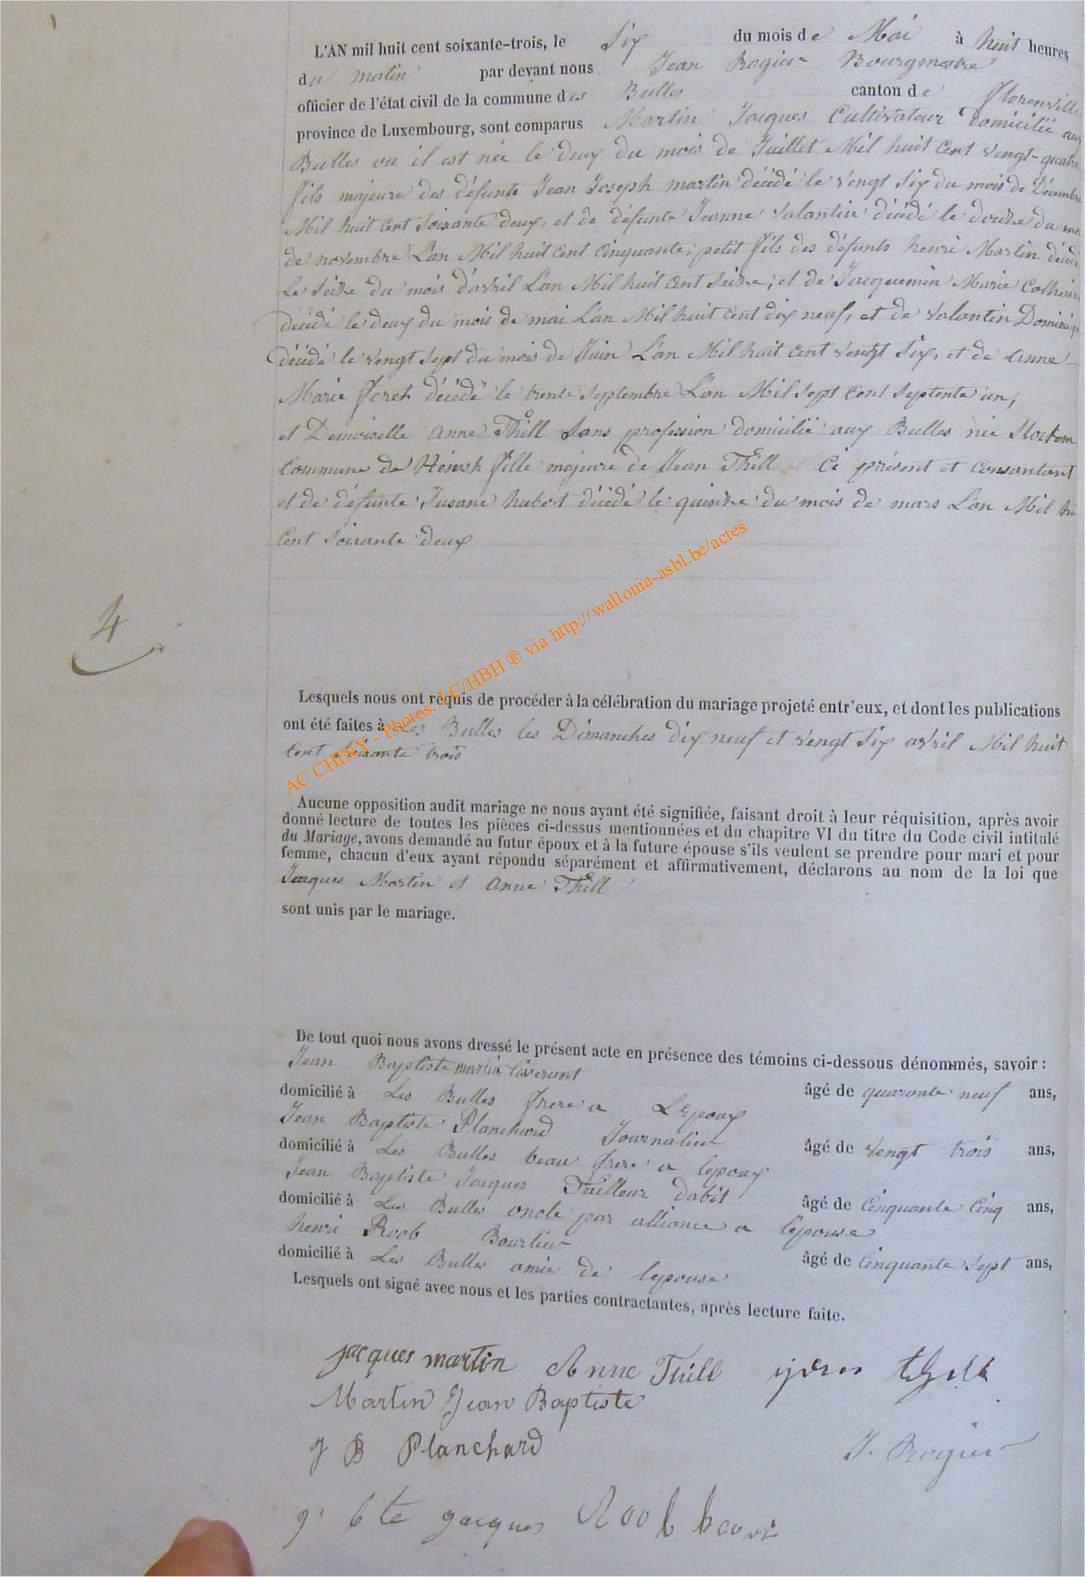 L'AN mil huit cent soixante-trois, le Six du mois de Mai à huit heures
du matin par devant nous Jean Rogier Bourgmestre
officier de l'état civil de la commune des Bulles canton de Florenville
province de Luxembourg, sont comparus Martin Jacques Cultivateur Domicilié aux
Bulles ou il est née le deux du mois de Juillet Mil huit cent vengt-quatre
fils majeure des défunts Jean Joseph martin décédé le vengt Six du mois de Décembre
Mil huit cent Soixante deux, et de défunte Jeanne Valantin décédé le douze du
de novembre L'an Mil huit cent cinquante, petit fils des défunts henri Martin décédé
Le Seize du mois d'avril L'an Mil huit cent Seize, et de Jacquemin Marie Catherine
décédé le deux du mois de mai L'an Mil huit cent dix neuf, et de Valantin Dominique
décédé le vengt Sept du mois de Juin L'an Mil huit cent vengt Six, et de Anne
Marie décédé le trente Septembre L'an Mil Sept Cent Septente un,
et Demoiselle Anne Thill Sans profession domicilié aux Bulles née
Commune de fille majeure de Jean Thill Ci présent et Consantant
et de défunte Susane hubert décédé le quinze du mois de mars L'an Mil hu
Cent Soixante deux
4
Lesquels nous ont requis de procéder à la célébration du mariage projeté entr'eux, et dont les publications
ont été faites à Les Bulles les Dimanches dix neuf et vengt Six avril Mil huit
Cent Soixante trois
Aucune opposition audit mariage ne nous ayant été signifiée, faisant droit à leur réquisition, après avoir
donné lecture de toutes les pièces ci-dessus mentionnées et du chapitre VI du titre du Code civil intitulé
du Mariage, avons demandé au futur époux et à la future épouse s'ils veulent se prendre pour mari et pour
femme, chacun d'eux ayant répondu séparément et affirmativement, déclarons au nom de la loi que
Jacques Martin et Anne Thill
sont unis par le mariage.
De tout quoi nous avons dressé le présent acte en présence des témoins ci-dessous dénommés, savoir :
Jean Baptiste martin
domicilié à Les Bulles frere a Lepoux âgé de quarante neuf ans,
Jean Baptiste Planchard Journalier
domicilié à Les Bulles beau frere a lepoux âgé de vengt trois ans,
Jean Baptiste Jacques Tailleur dabit
domicilié à Les Bulles oncle par alliance a lepouse âgé de Cinquante Cinq ans,
henri Roob Bourlier
domicilié à Les Bulles amie de lepouse âgé de Cinquante Sept ans,
Lesquels ont signé avec nous et les parties contractantes, après lecture faite.
jacques martin Anne Thill
Martin Jean Baptiste
J B Planchard J. Rogier
j. bte jacques Roob
AC CHINY - Photos: LC/HBH ® via http://wallonia-asbl.be/actes